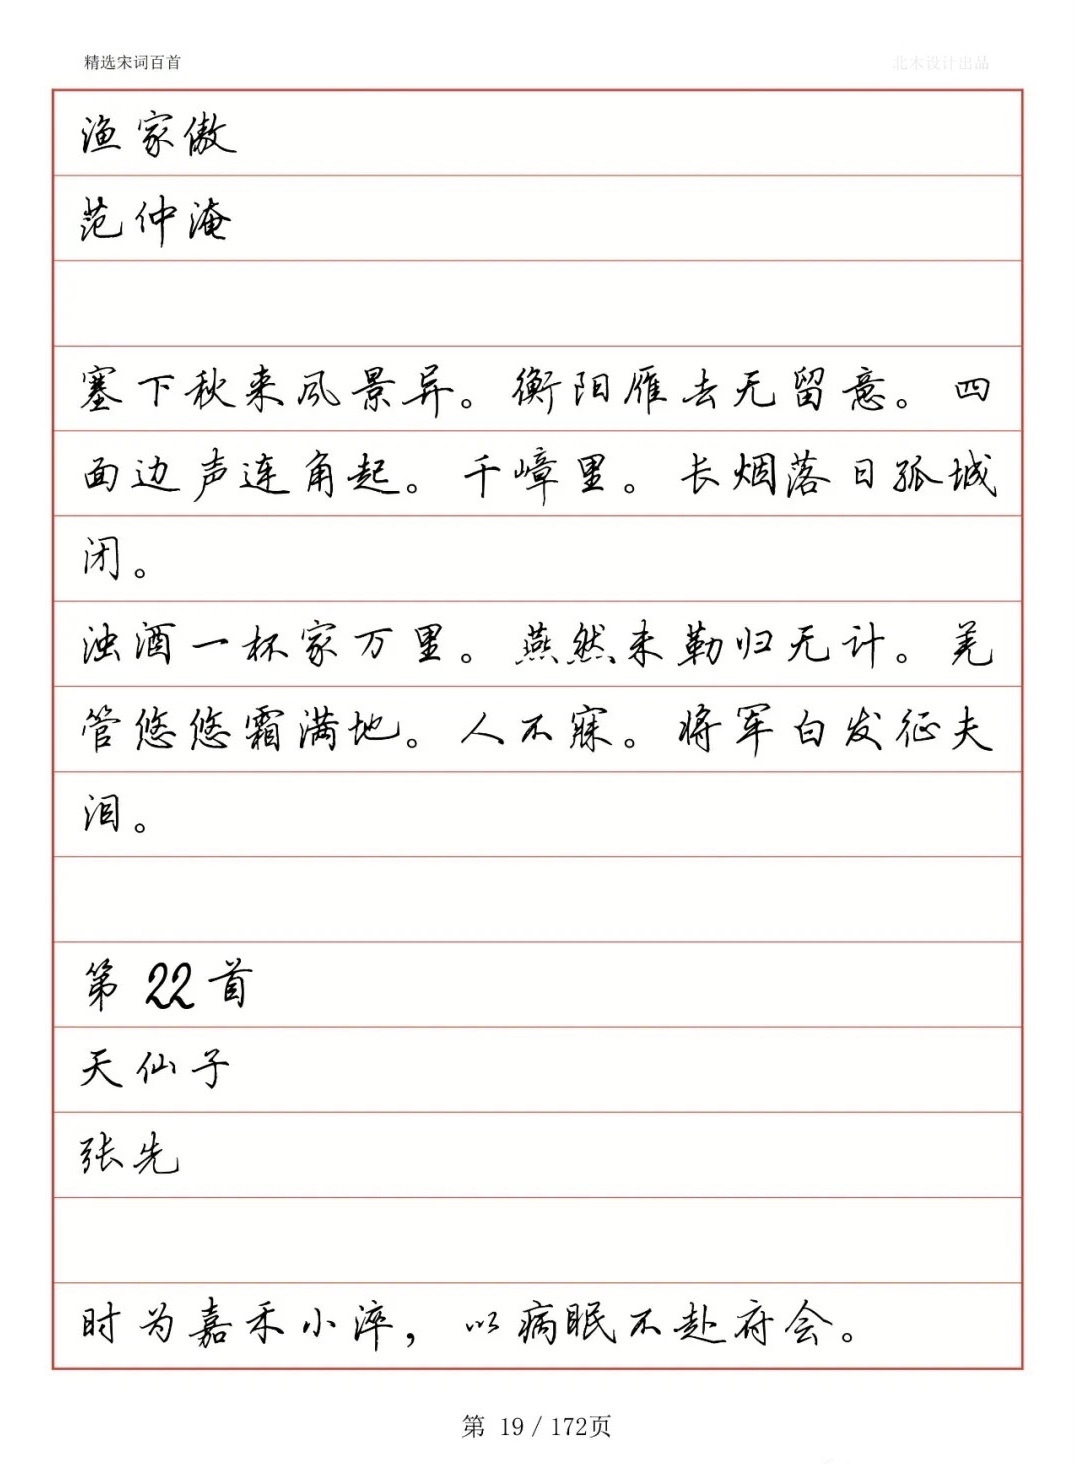 精选宋词百首
北木设计出品
渔家傲
范仲淹
塞下秋来风景异。衡阳雁去无留意。四
面边声连角起。千嶂里。长烟落日孤城
闭。
浊酒一杯家万里。燕然未勒归无计。羌
管悠悠霜满地。人不寐。将军白发征夫
泪。
第22首
天仙子
张先
时为嘉禾小淬，以病眠不赴府会。
第 19 / 172页